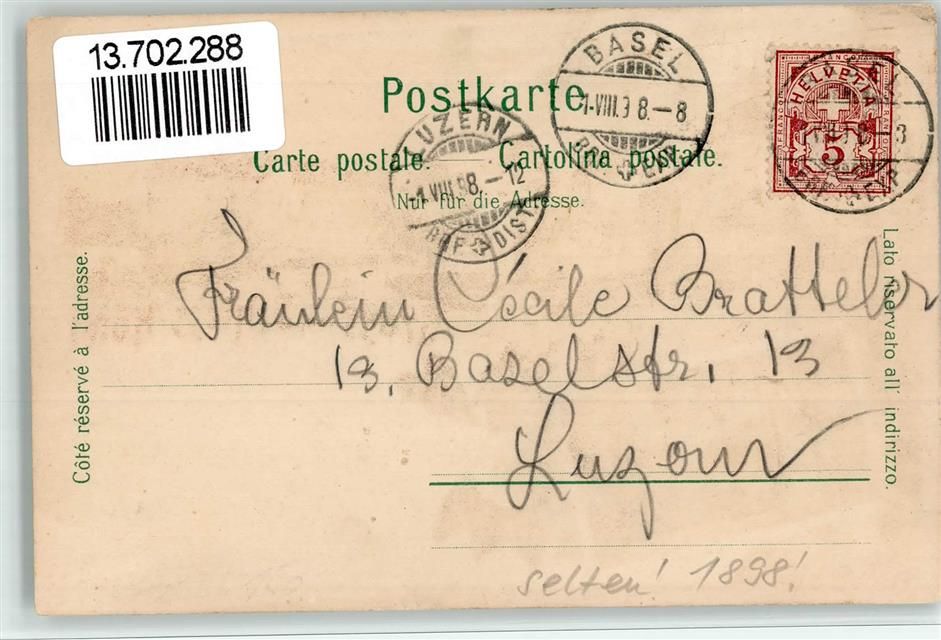 13.702.288
Postkarte
Carte postale. Cartolina postale.
Nur für die Adresse.
BASEL
1.VIII.98.-8
BRF. EXP.
LUZERN
1.VIII.98.-12
BRF. DIST.
HELVETIA
FRANCO
FRANCO
5
Côté réservé à l'adresse.
Lato riservato all' indirizzo.
Fräulein Cécile Bratteler
13, Baselstr. 13
Luzern
selten! 1898!